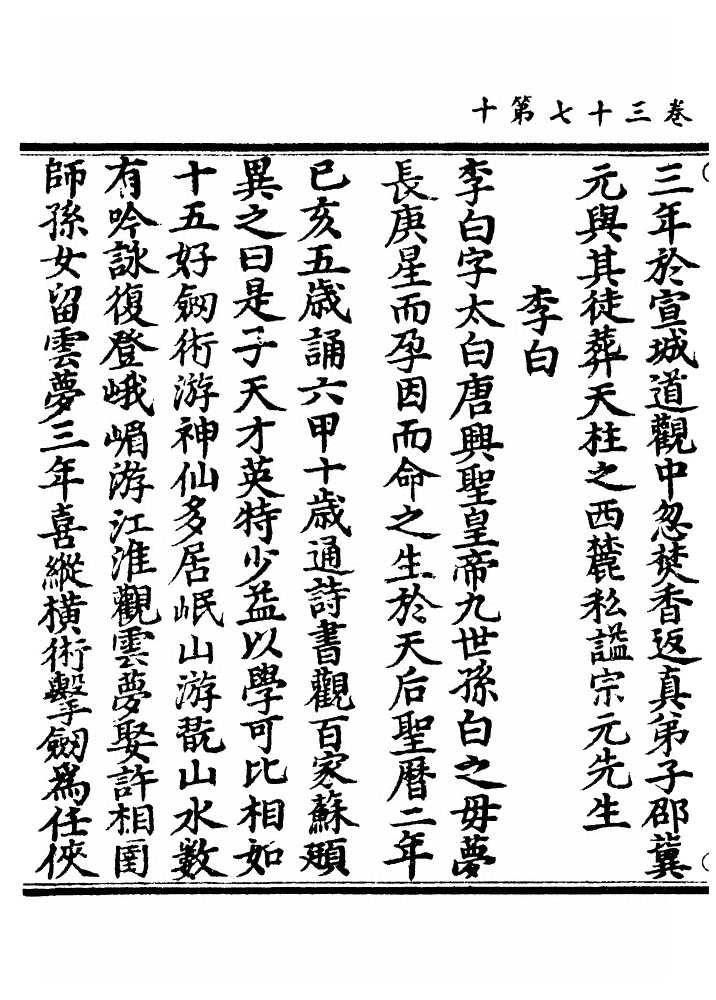 卷三十七第十
三年於宣城道觀中忽焚香返真弟子邵冀
元與其徒葬天柱之西麓私謚宗元先生
李白
李白字太白唐興聖皇帝九世孫白之毋夢
長庚星而孕因而命之生於天后聖曆二年
已亥五歲誦六甲十歲通詩書觀百家蘇頲
異之曰是子天才英特少益以學可比相如
十五好劔術游神仙多居岷山游翫山水數
有吟詠復登峨嵋游江淮觀雲夢娶許相圉
師孫女留雲夢三年喜縱橫術擊劔為任俠